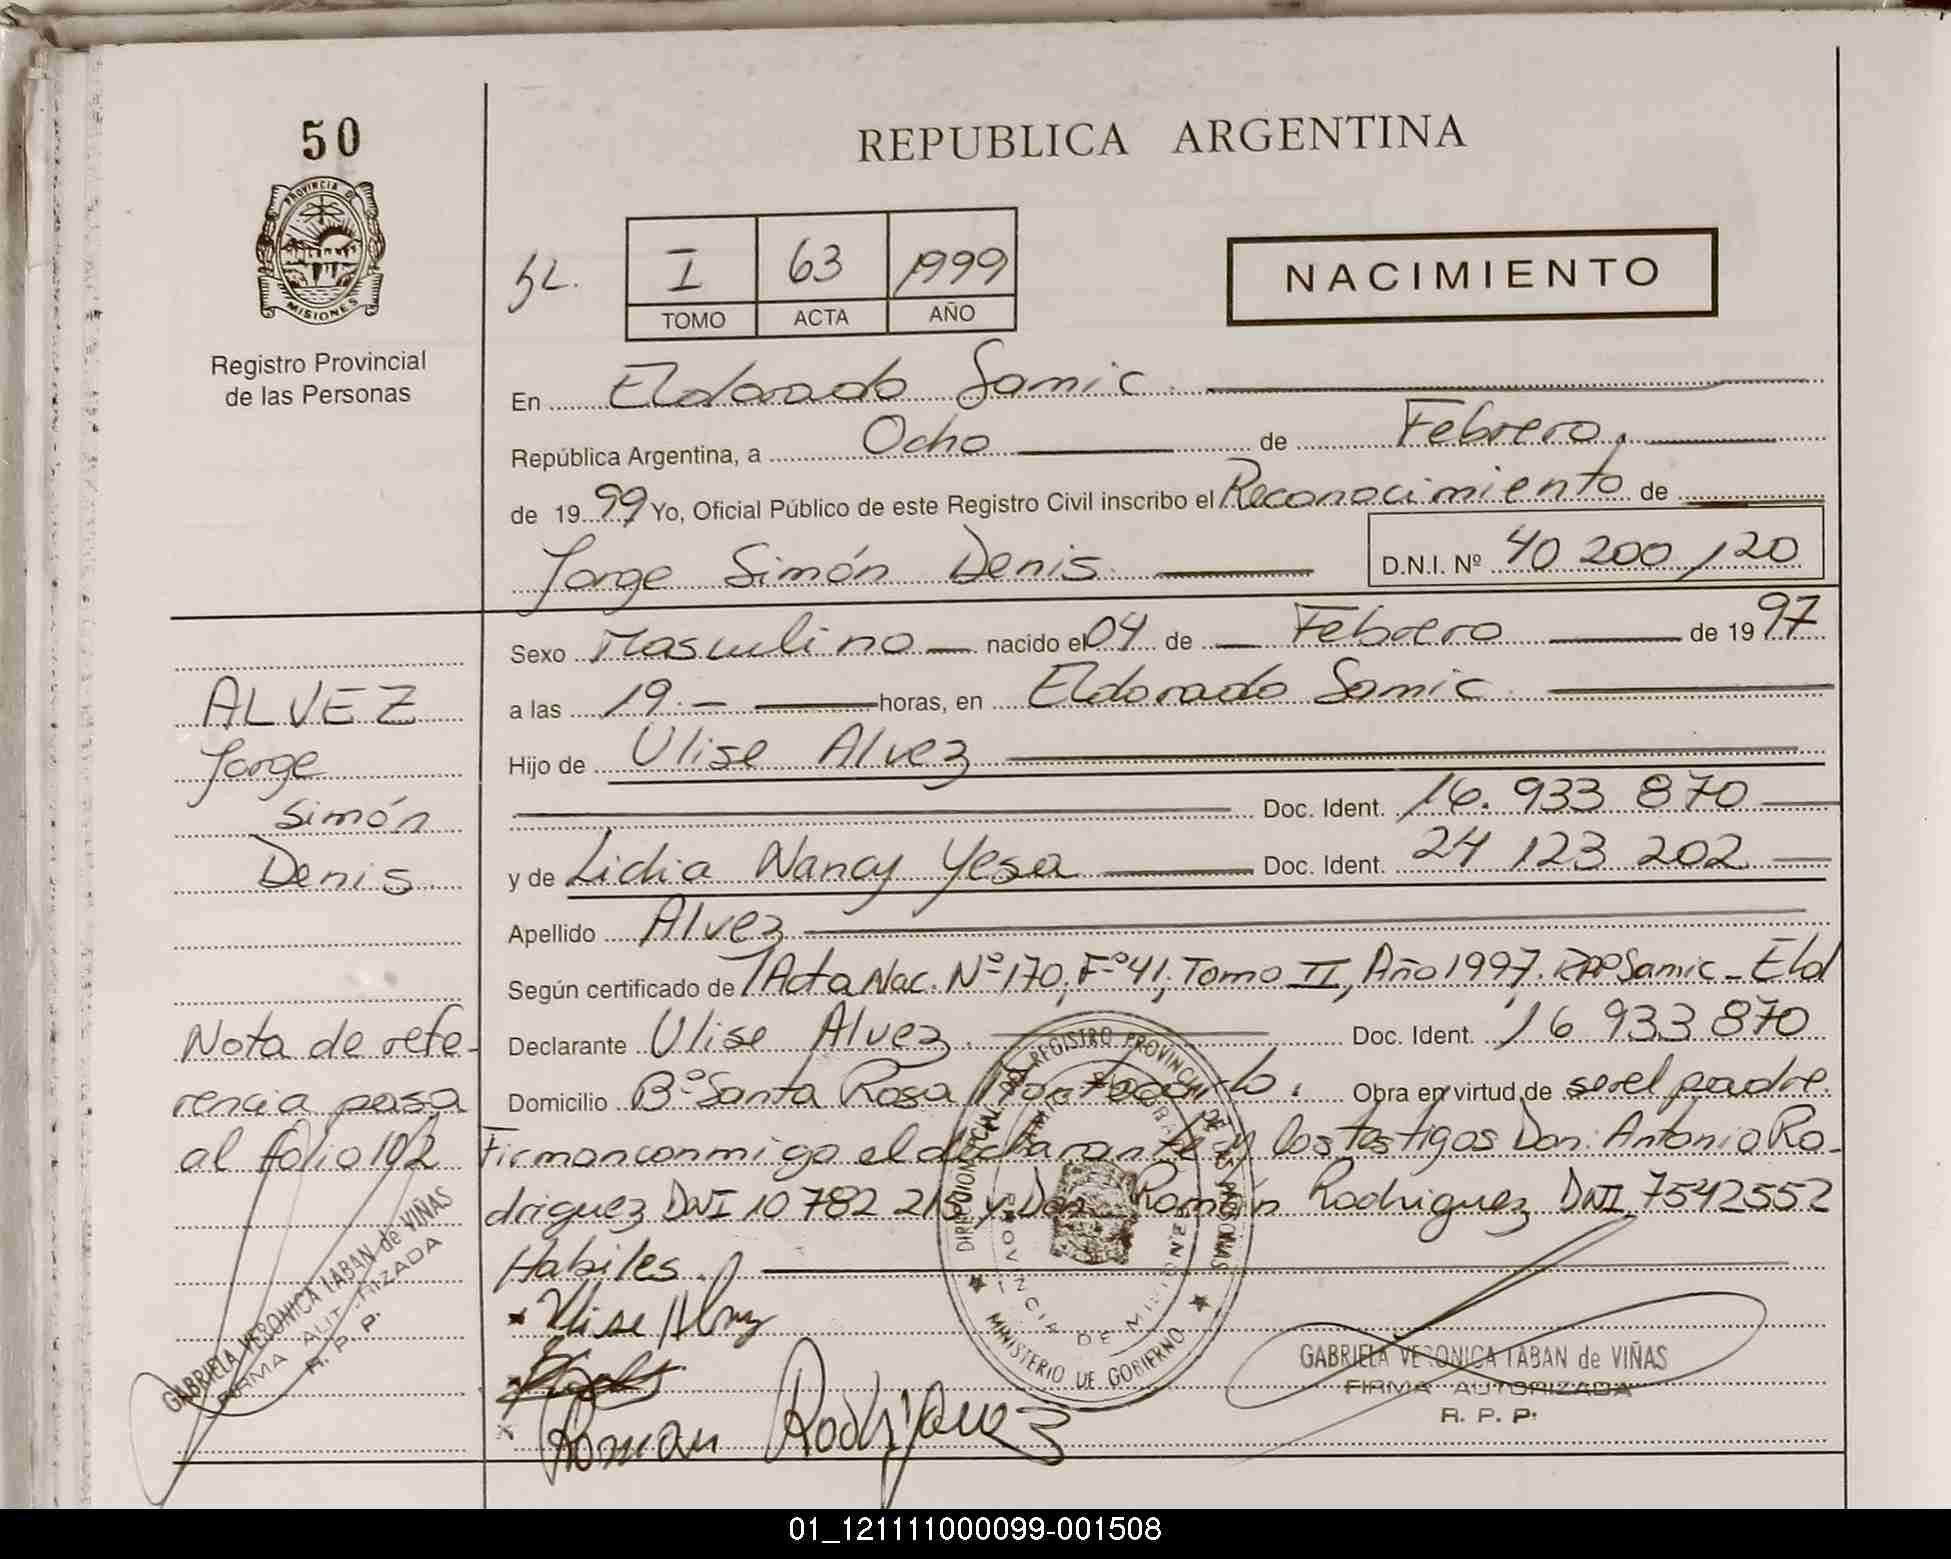 50
REPUBLICA ARGENTINA
PROVINCIA DE
MISIONES
Registro Provincial
de las Personas
I 63 1999
TOMO ACTA AÑO
NACIMIENTO
En Eldorado Samic.
República Argentina, a Ocho de Febrero.
de 1999 Yo, Oficial Público de este Registro Civil inscribo el Reconocimiento de
Jorge Simón Denis. D.N.I. Nº 40 200 120
Sexo Masculino nacido el 04 de Febrero de 1997
a las 19.- horas, en Eldorado Samic.
Hijo de Ulise Alvez
Doc. Ident. 16.933 870
y de Lidia Nancy Yesa Doc. Ident. 24 123 202
Apellido Alvez
Según certificado de Acta Nac. Nº 170, Fº 41, Tomo II, Año 1997. RPP Samic - Eld
Declarante Ulise Alvez. Doc. Ident. 16 933 870
Domicilio Bº Santa Rosa Obra en virtud de ser el padre.
Firman conmigo el declarante y los testigos Don: Antonio Ro-
driguez DNI 10 782 215 y Don Román Rodriguez DNI 7542552
Habiles.
ALVEZ
Jorge
Simón
Denis.
Nota de refe-
rencia pasa
al folio 102
GABRIELA VERONICA LABAN de VIÑAS
FIRMA AUTORIZADA
R. P. P.
Ulise Alvez
Roman Rodriguez
DIRECCION REGISTRO PROVINCIAL DE LAS PERSONAS
MINISTERIO DE GOBIERNO
PROVINCIA DE MISIONES
GABRIELA VERONICA LABAN de VIÑAS
FIRMA AUTORIZADA
R. P. P.
01_121111000099-001508